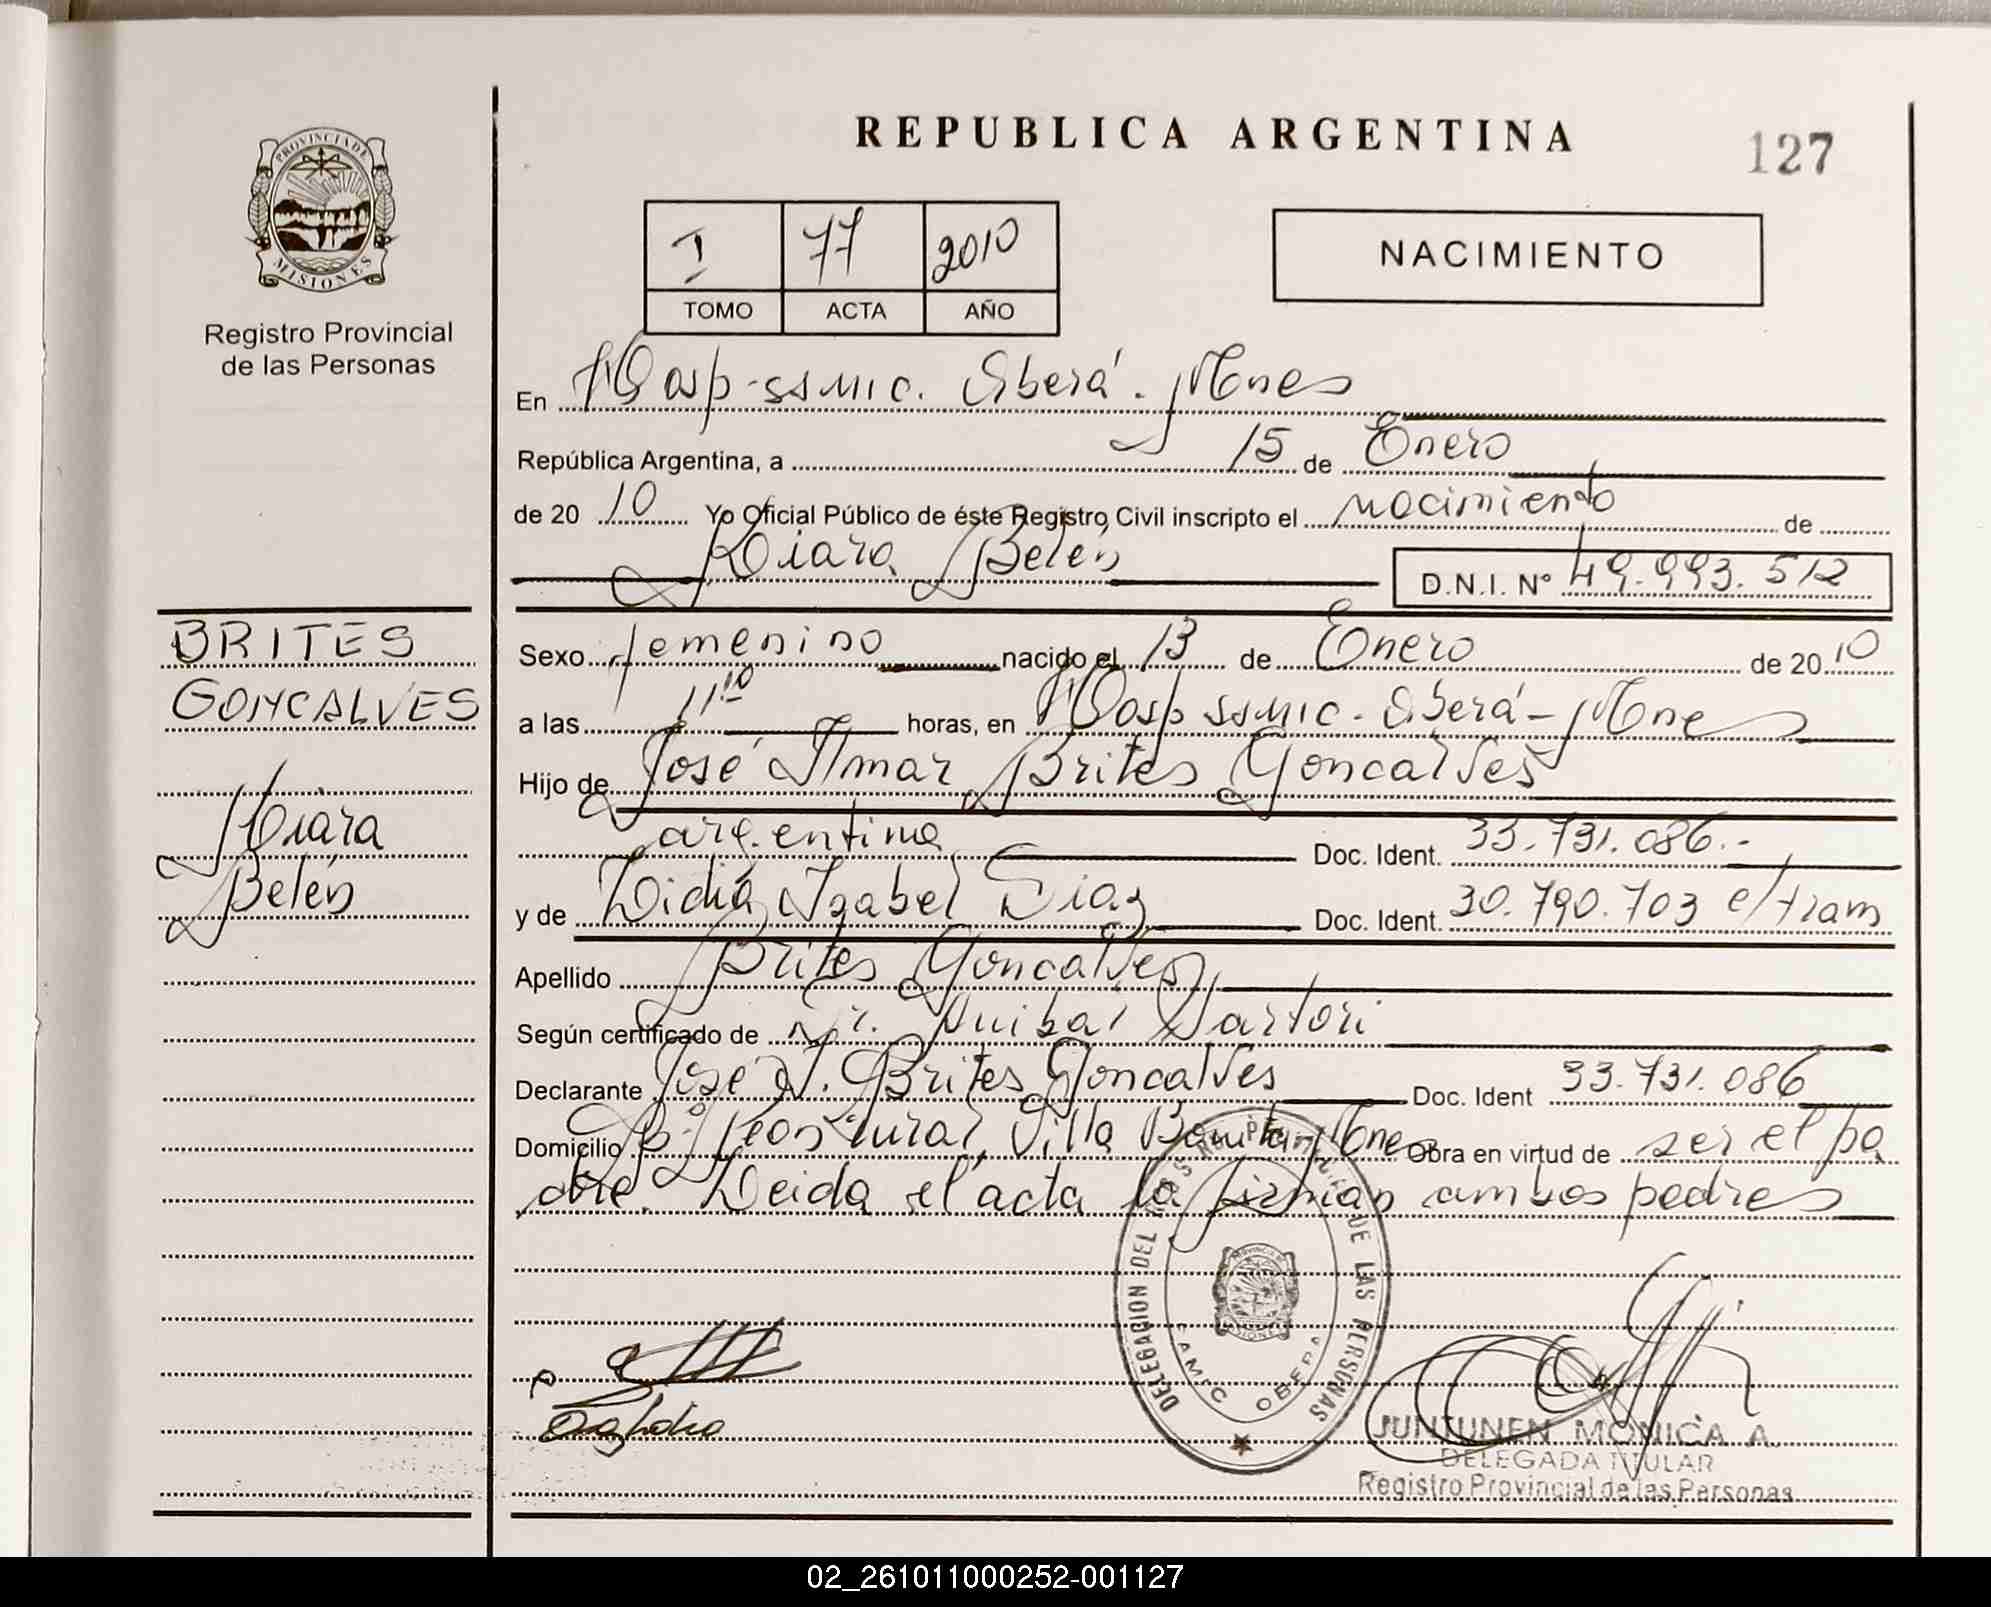 PROVINCIA DE
MISIONES
Registro Provincial
de las Personas
REPUBLICA ARGENTINA
127
I 77 2010
TOMO ACTA AÑO
NACIMIENTO
En Hosp. ssmic. Oberá. Mnes
República Argentina, a 15 de Enero
de 20 10 Yo Oficial Público de éste Registro Civil inscripto el nacimiento de
Kiara Belén D.N.I. N° 49.993.512
BRITES
GONCALVES
Kiara
Belén
Sexo femenino nacido el 13 de Enero de 20 10
a las 11 10 horas, en Hosp ssmic. Oberá - Mnes
Hijo de José Ilmar Brites Goncalves
argentino Doc. Ident. 33.731.086.-
y de Lidia Izabel Diaz Doc. Ident. 30.790.703 e/tram
Apellido Brites Goncalves
Según certificado de Dr. Anibal Sartori
Declarante José I. Brites Goncalves Doc. Ident 33.731.086
Domicilio rural, Villa Bonita, Mnes Obra en virtud de ser el pa
dre. Leida el acta la firman ambos padres
DELEGACION DEL REGISTRO PROVINCIAL DE LAS PERSONAS
SAMIC OBERA
JUNTUNEN MONICA A.
DELEGADA TITULAR
Registro Provincial de las Personas
02_261011000252-001127